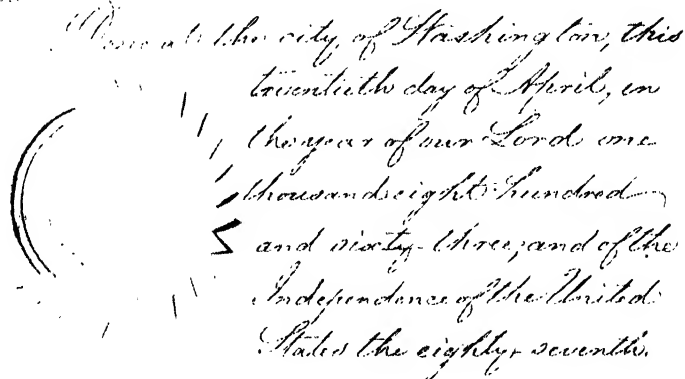 Done at the city of Washington, this
twentieth day of April, in
the year of our Lord one
thousand eight hundred
and sixty-three, and of the
Independence of the United
States the eighty-seventh.